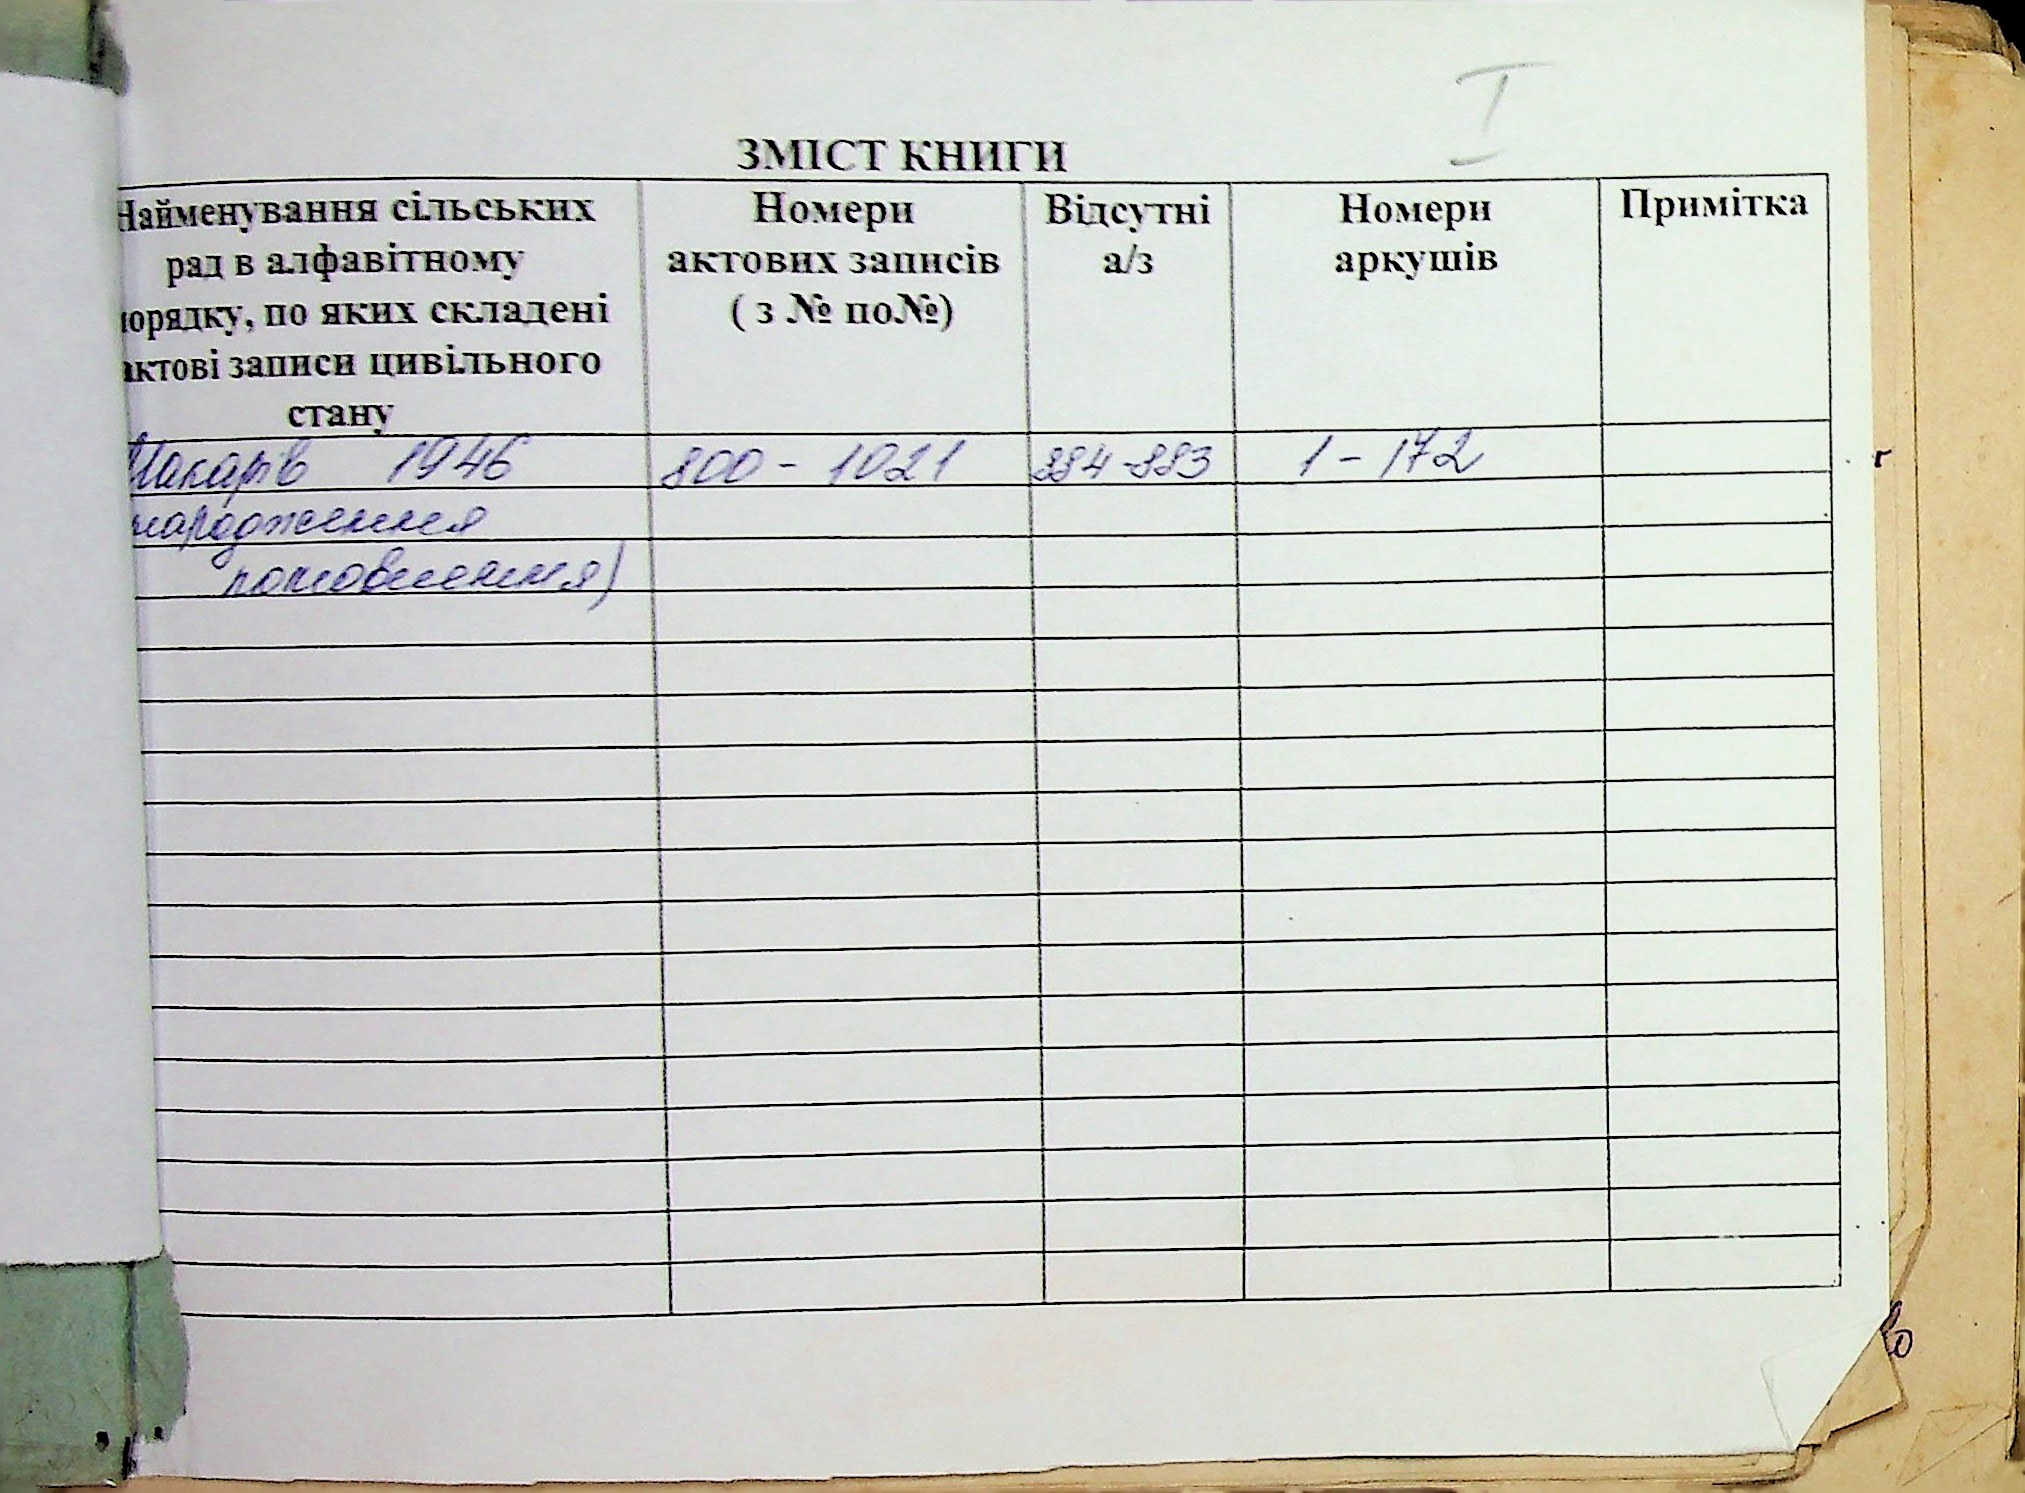 I
ЗМІСТ КНИГИ
Найменування сільських рад в алфавітному порядку, по яких складені актові записи цивільного стану
Номери актових записів ( з № по№)
Відсутні а/з
Номери аркушів
Примітка
Макарів 1946 800 - 1021 884-883 1 - 172
народження
поновлення)